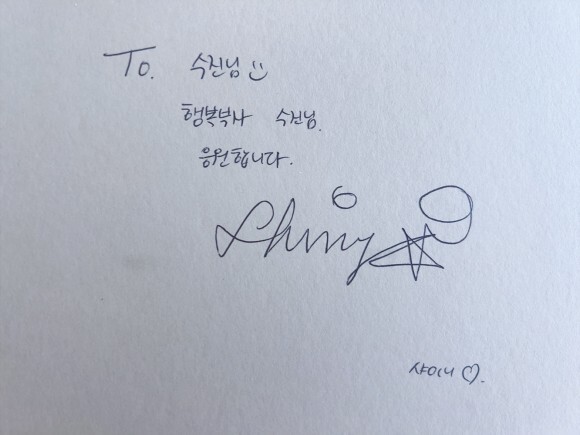 To. 수진님
행복부자 수진님.
응원합니다.
Shiny
샤이니 ♡.